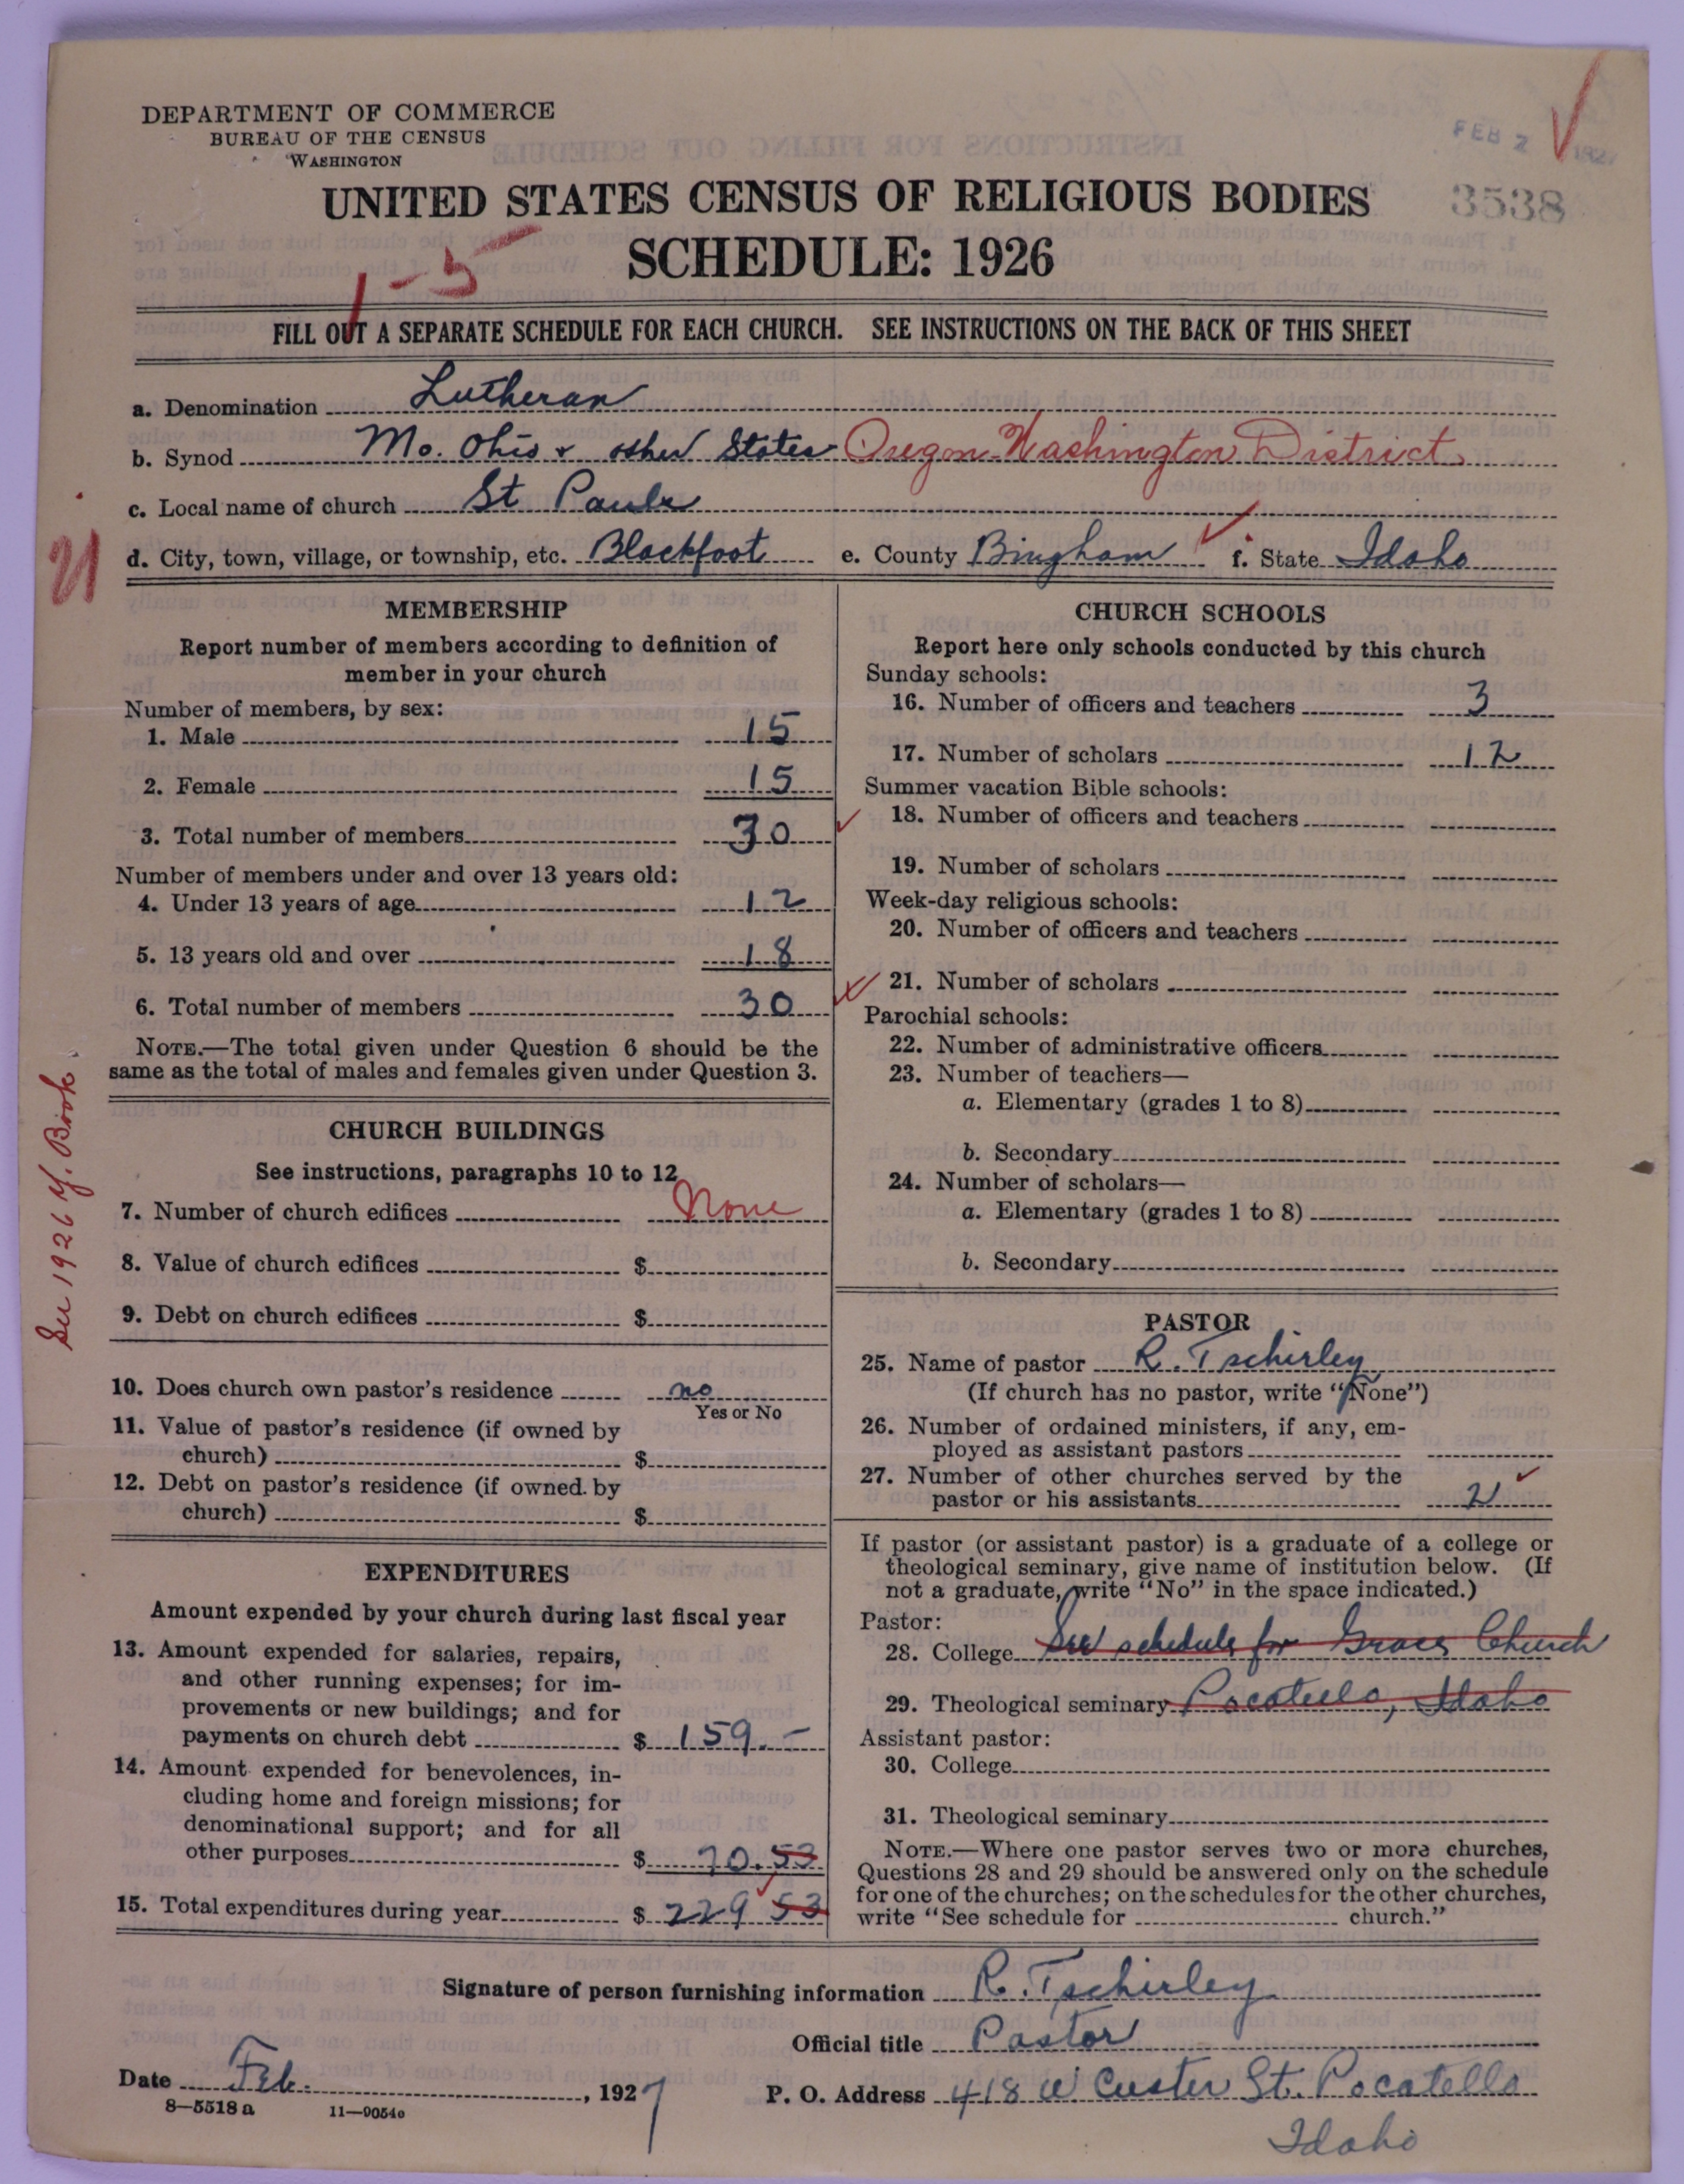 DEPARTMENT OF COMMERCE
BUREAU OF THE CENSUS
WASHINGTON
FEB 2 1927
UNITED STATES CENSUS OF RELIGIOUS BODIES
3538
SCHEDULE: 1926
1-5
FILL OUT A SEPARATE SCHEDULE FOR EACH CHURCH. SEE INSTRUCTIONS ON THE BACK OF THIS SHEET
a. Denomination Lutheran
b. Synod Mo. Ohio & other States Oregon-Washington District.
c. Local name of church St Pauls
d. City, town, village, or township, etc. Blackfoot e. County Bingham f. State Idaho
MEMBERSHIP
Report number of members according to definition of
member in your church
Number of members, by sex:
1. Male 15
2. Female 15
3. Total number of members 30
Number of members under and over 13 years old:
4. Under 13 years of age 12
5. 13 years old and over 18
6. Total number of members 30
NOTE.—The total given under Question 6 should be the
same as the total of males and females given under Question 3.
See 1926 Y. Book
CHURCH BUILDINGS
See instructions, paragraphs 10 to 12
7. Number of church edifices None
8. Value of church edifices $
9. Debt on church edifices $
10. Does church own pastor's residence no
Yes or No
11. Value of pastor's residence (if owned by
church) $
12. Debt on pastor's residence (if owned by
church) $
EXPENDITURES
Amount expended by your church during last fiscal year
13. Amount expended for salaries, repairs,
and other running expenses; for im-
provements or new buildings; and for
payments on church debt $ 159.-
14. Amount expended for benevolences, in-
cluding home and foreign missions; for
denominational support; and for all
other purposes $ 70.53
15. Total expenditures during year $ 229 53
CHURCH SCHOOLS
Report here only schools conducted by this church
Sunday schools:
16. Number of officers and teachers 3
17. Number of scholars 12
Summer vacation Bible schools:
18. Number of officers and teachers
19. Number of scholars
Week-day religious schools:
20. Number of officers and teachers
21. Number of scholars
Parochial schools:
22. Number of administrative officers
23. Number of teachers—
a. Elementary (grades 1 to 8)
b. Secondary
24. Number of scholars—
a. Elementary (grades 1 to 8)
b. Secondary
PASTOR
25. Name of pastor R. Tschirley
(If church has no pastor, write "None")
26. Number of ordained ministers, if any, em-
ployed as assistant pastors
27. Number of other churches served by the
pastor or his assistants 2
If pastor (or assistant pastor) is a graduate of a college or
theological seminary, give name of institution below. (If
not a graduate, write "No" in the space indicated.)
Pastor:
28. College See schedule for Grace Church
29. Theological seminary Pocatello, Idaho
Assistant pastor:
30. College
31. Theological seminary
NOTE.—Where one pastor serves two or more churches,
Questions 28 and 29 should be answered only on the schedule
for one of the churches; on the schedules for the other churches,
write "See schedule for church."
Signature of person furnishing information R. Tschirley
Official title Pastor
Date Feb. , 1927
P. O. Address 418 W Custer St. Pocatello
Idaho
8—5518 a 11—9054c